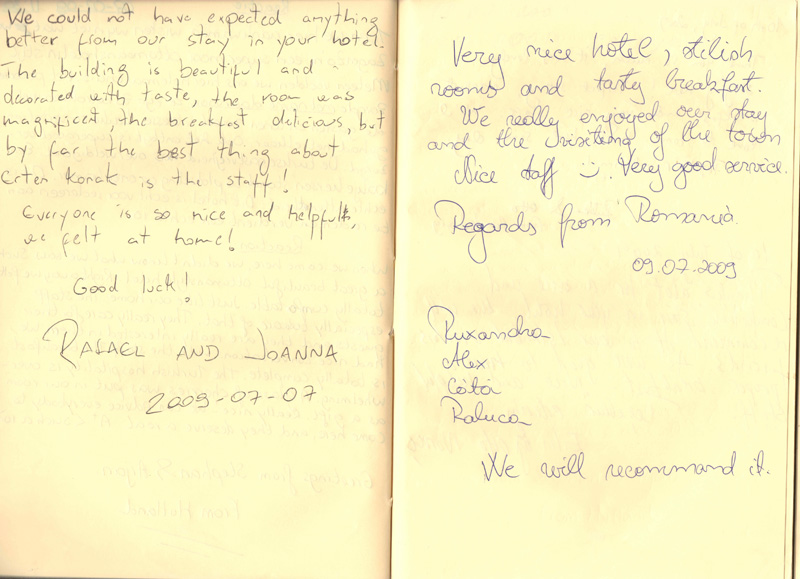 We could not have expected anything
better from our stay in your hotel.
The building is beautiful and
decorated with taste, the room was
magnificent, the breakfast delicious, but
by far the best thing about
Erten Konak is the staff!
Everyone is so nice and helpfull,
we felt at home!
Good luck!
RAFAEL AND JOANNA
2009-07-07
Very nice hotel, stilish
rooms and tasty breakfast.
We really enjoyed our stay
and the visiting of the town
Nice staff :). Very good service.
Regards from Romania.
09.07.2009
Ruxandra
Alex
Cătă
Raluca
We will recommand it.